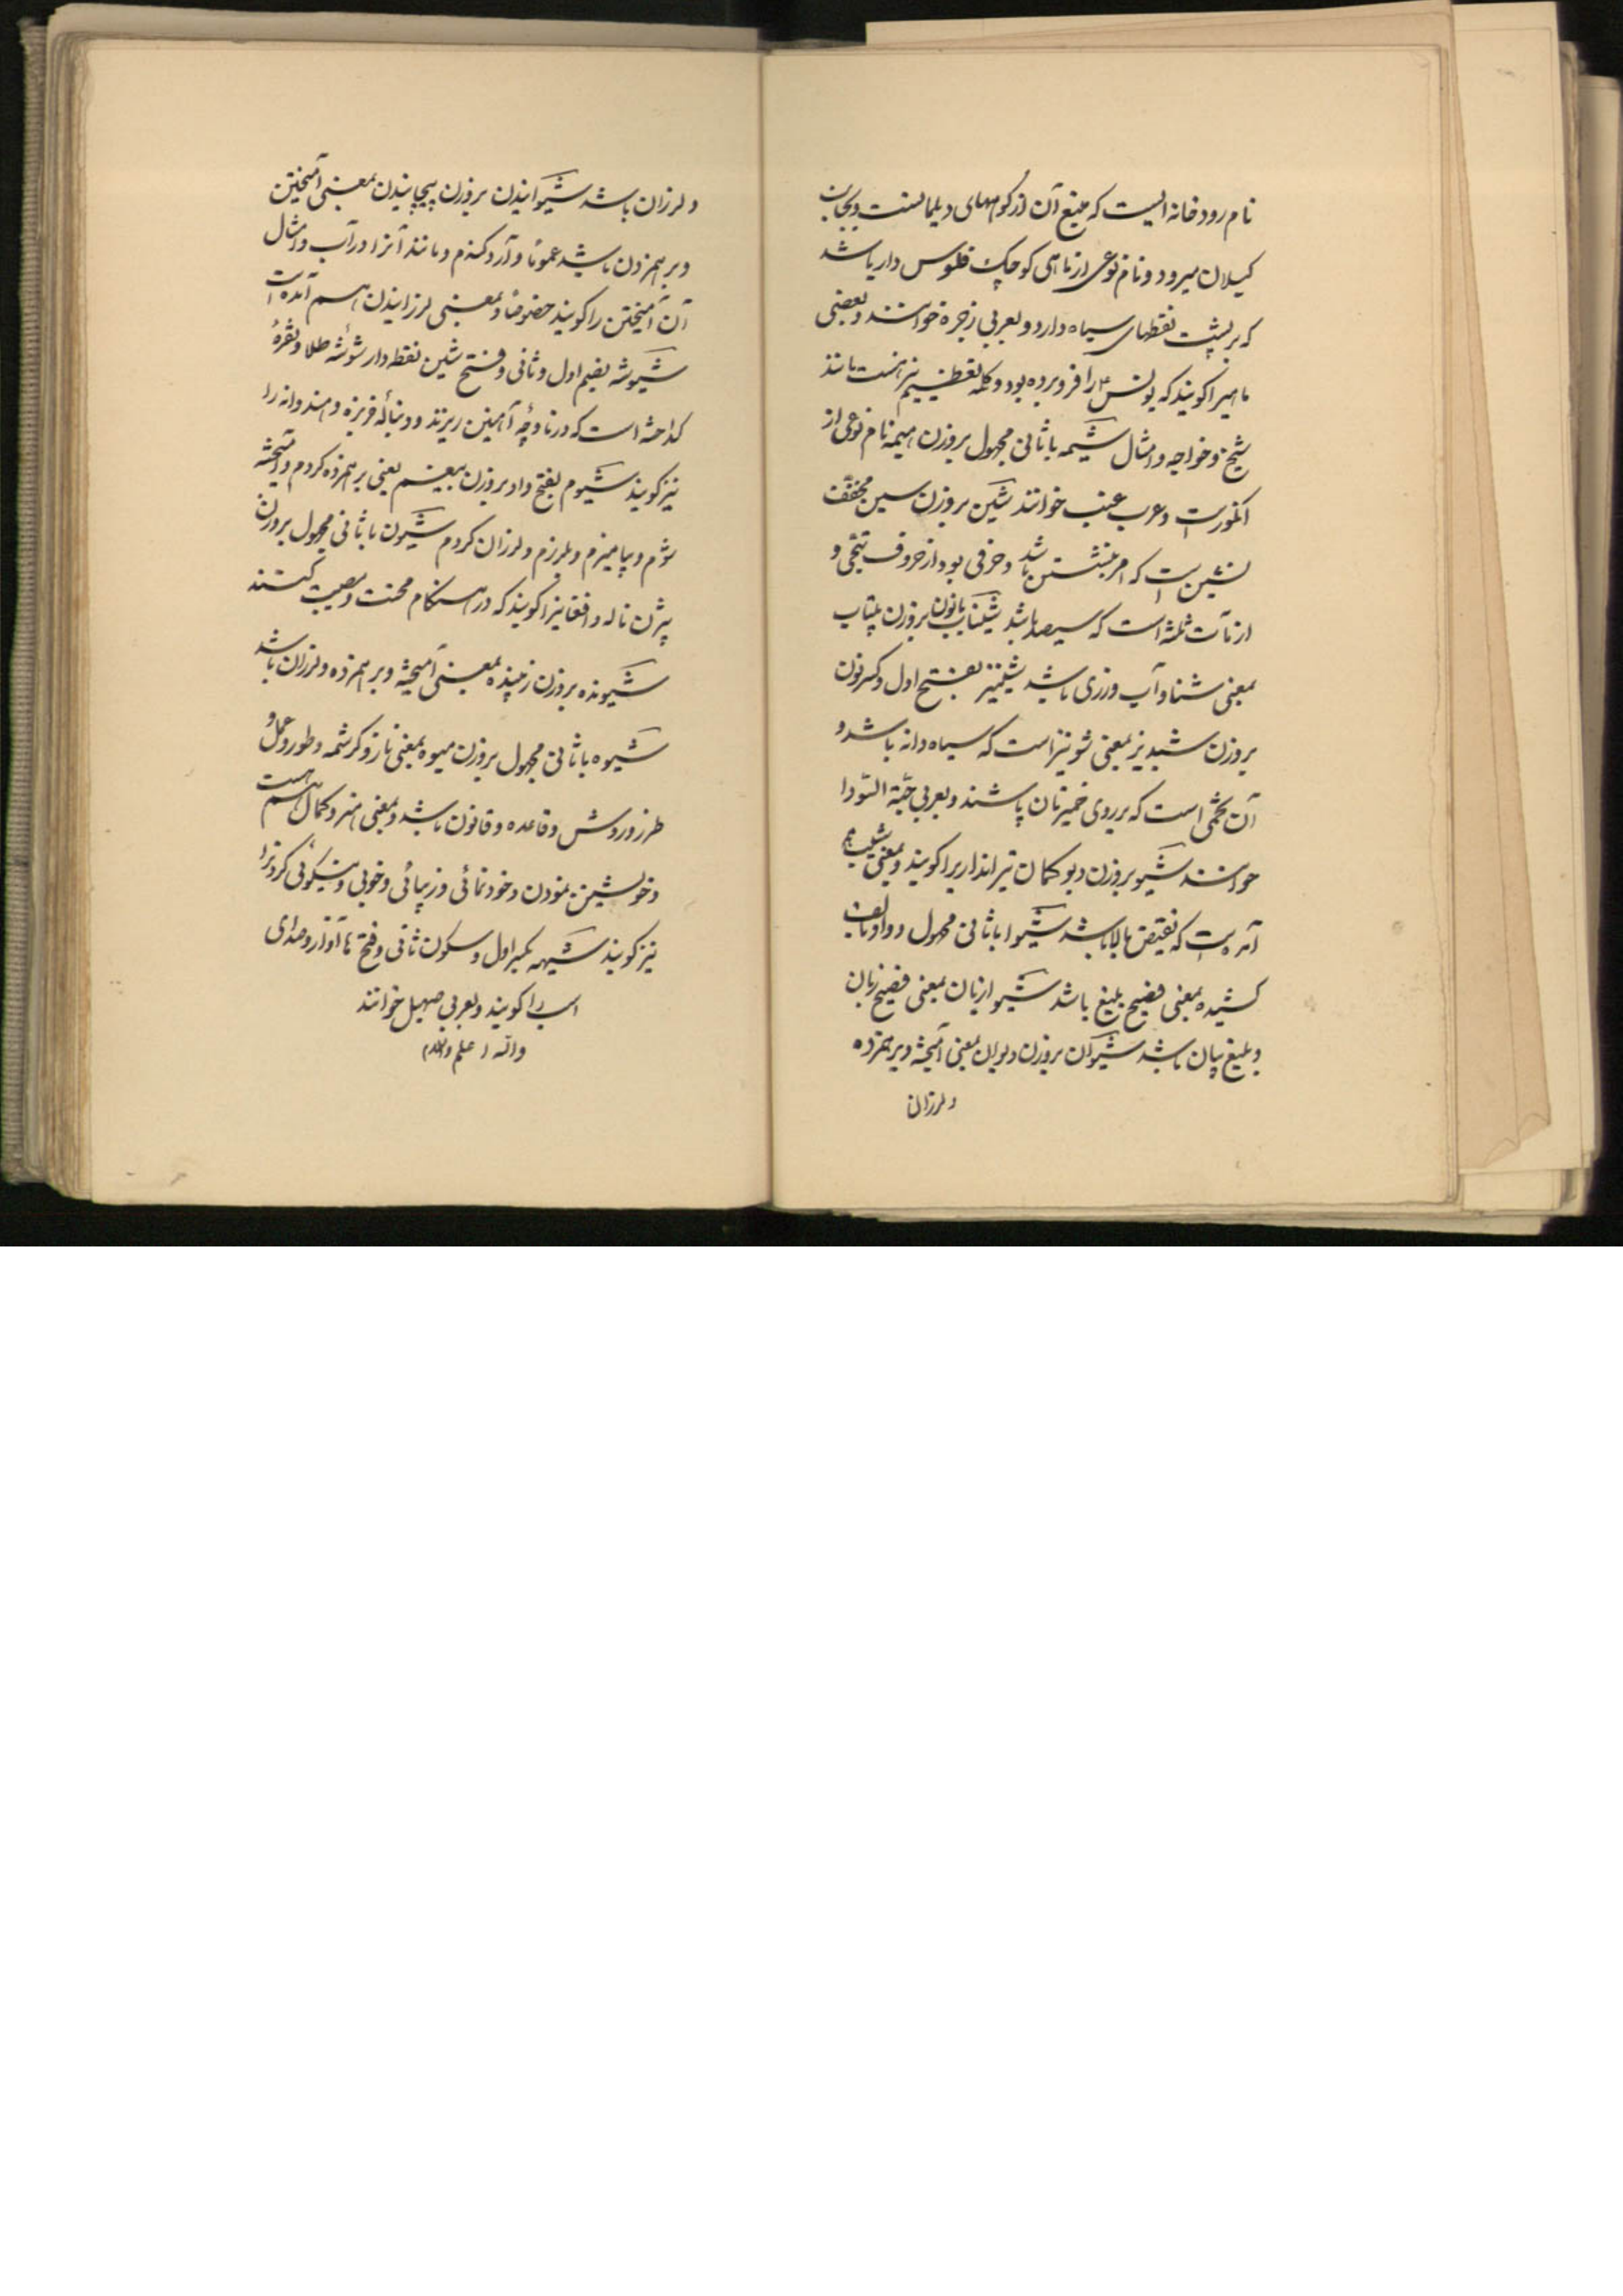 نام رودخانه ایست که منبع آن از کوههای دیلمانست و بجانب
کیلان میرود و نام نوعی از ماهی کوچک فلوس دار باشد
که بر پشت نقطهای سیاه دارد و بعربی زجره خوانند و بعضی
ماهیرا کویند که یونس را فرو برده بود و کلمه تعظیم نیز هست مانند
شیخ و خواجه و امثال شیمه باثانی مجهول بروزن هیمه نام نوعی از
انکورست و عرب عنب خوانند شین بروزن سین مخفف
نشین است که امر بنشستن باشد و حرفی بود از حروف تهجی و
از مآت ثلثه است که سیصد باشد شیناب بانون بروزن بیتاب
بمعنی شنا و آب ورزی باشد شینیز بفتح اول و کسر نون
بروزن شبدیز بمعنی شونیز است که سیاه دانه باشد و
آن تخمی است که بر روی خمیر نان پاشند و بعربی حبة السودا
خوانند شیو بروزن دیو کمان تیراندازیرا کویند و بمعنی شیب هم
آمده است که نقیض بالا باشد شیوا باثانی مجهول و واو بالف
کشیده بمعنی فصیح بلیغ باشد شیوازبان بمعنی فصیح زبان
و بلیغ بیان باشد شیوان بروزن دیوان بمعنی آمیخته و برهمزده
ولرزان
ولرزان باشد شیوانیدن بروزن پیچانیدن بمعنی آمیختن
و برهمزدن باشد عموما و آرد کندم و مانند آنرا در آب و امثال
آن آمیختن را کویند خصوصا و بمعنی لرزانیدن هم آمده است
شیوشه بضم اول و ثانی و فتح شین نقطه دار شوشه طلا و نقره
کداخته است که در ناوچه آهنین ریزند و دنباله خربزه و هندوانه را
نیز کویند شیوم بفتح واو بروزن بیغم یعنی برهمزده کردم و آمیخته
شوم و بیامیزم و بلرزم و لرزان کردم شیون باثانی مجهول بروزن
بیژن ناله و افغانیرا کویند که در هنکام محنت و مصیبت کنند
شیونده بروزن زیبنده بمعنی آمیخته و برهمزده و لرزان باشد
شیوه باثانی مجهول بروزن میوه بمعنی ناز و کرشمه و طور و عمل و
طرز و روش و قاعده و قانون باشد و بمعنی هنر و کمال هم هست
و خوبشتن نمودن و خودنمائی و زیبائی و خوبی و نیکوئی کردنرا
نیز کویند شیهه بکسر اول و سکون ثانی و فتح ها آواز و صدای
اسب را کویند و بعربی صهیل خوانند
والله اعلم